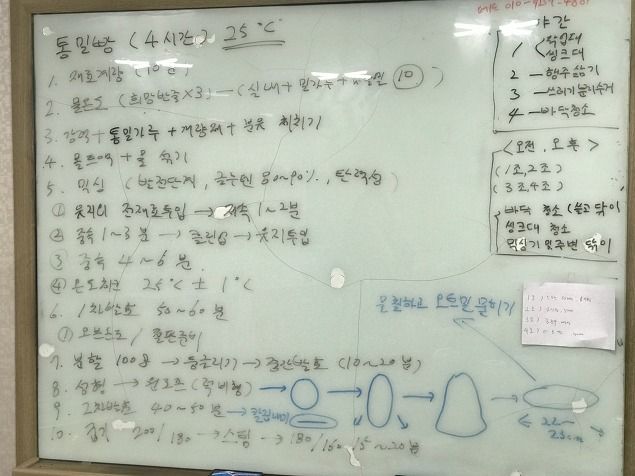 통밀빵 (4시간) 25℃
1. 재료계량 (10분)
2. 물온도 (희망반죽×3) — (실내+밀가루+마찰열 10)
3. 강력+통밀가루+개량제+분유 체치기
4. 몰트액+물 섞기
5. 믹싱 (발전단계, 글루텐 80~90%, 탄력성)
① 유지외 전재료투입 → 저속 1~2분
② 중속 1~3분 → 클린업 → 유지투입
③ 중속 4~6분
④ 온도체크 25℃ ± 1℃
6. 1차발효 50~60분
① 오븐온도/철판준비
7. 분할 100g → 둥글리기 → 중간발효 (10~20분)
8. 성형 → 원로프 (럭비형) →
9. 2차발효 40~50분 → 칼집내기
10. 굽기 200/180 → 스팀 → 180/160 15~20분
물칠하고 오트밀 묻히기
22~
23cm
야간
1 작업대
씽크대
2 — 행주삶기
3 — 쓰레기분리수거
4 — 바닥청소
<오전, 오후>
(1조, 2조)
(3조, 4조)
바닥 청소 (쓸고 닦이
씽크대 청소
믹싱기 및 주변 닦이